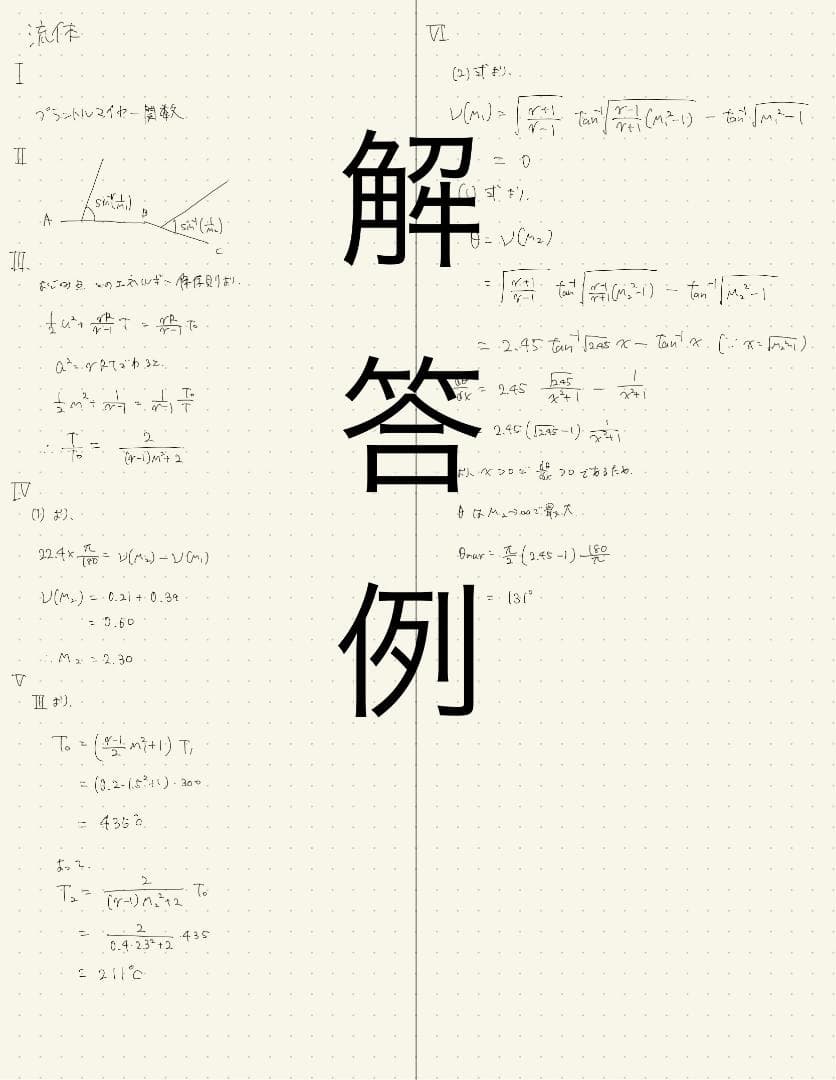 流体
I
プラントルマイヤー関数
II
A
sin⁻¹(1/M₁)
B
sin⁻¹(1/M₂)
C
III.
エネルギー保存則より.
1/2 u² + γR/γ-1 T = γR/γ-1 T₀
a² = γRTであるので
1/2 M² + 1/γ-1 = 1/γ-1 T₀/T
∴ T/T₀ = 2/(γ-1)M²+2
IV
(1) より,
22.4 × π/180 = ν(M₂) - ν(M₁)
ν(M₂) = 0.21 + 0.39
= 0.60
∴ M₂ = 2.30
V
III より.
T₀ = (γ-1/2 M₁² + 1) T₁
= (0.2・1.5²+1)・300
= 435
よって.
T₂ = 2/(γ-1)M₂²+2 T₀
= 2/0.4・2.3²+2・435
= 211℃
VI
(2) 式より.
ν(M₁) = √γ+1/γ-1 tan⁻¹√γ-1/γ+1(M₁²-1) - tan⁻¹√M₁²-1
= 0
(1) 式より.
θ = ν(M₂)
= √γ+1/γ-1 tan⁻¹√γ-1/γ+1(M₂²-1) - tan⁻¹√M₂²-1
= 2.45 tan⁻¹√2.45 x - tan⁻¹ x. (∵ x = √M₂²-1)
dθ/dx = 2.45 √2.45/x²+1 - 1/x²+1
= 2.45(√2.45 - 1)・1/x²+1
より x > 0 で dθ/dx > 0 であるため.
θ は M₂→∞で最大
θmax = π/2 (2.45 - 1)・180/π
= 131°
解
答
例